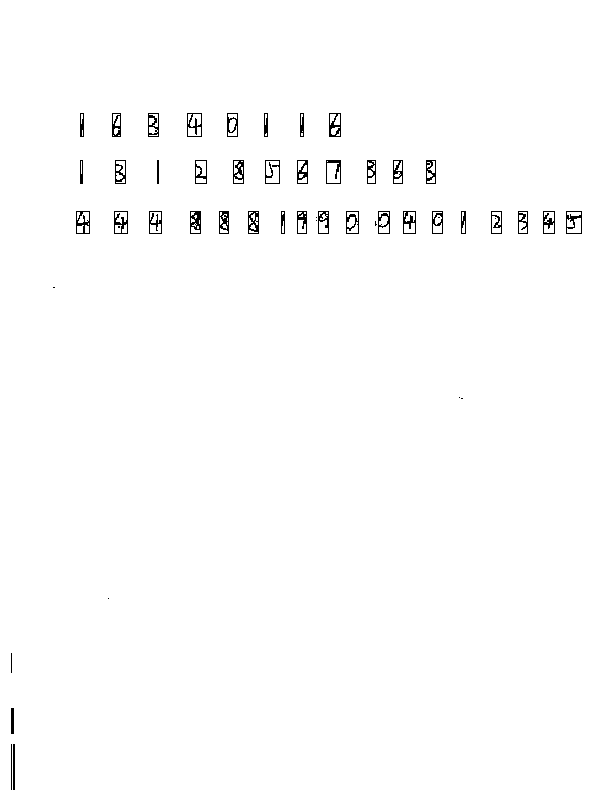 1 6 3 4 0 1 1 6
1 3 1 2 8 5 6 7 3 6 3
4 4 4 8 8 8 1 9 9 0 0 4 0 1 2 3 4 5